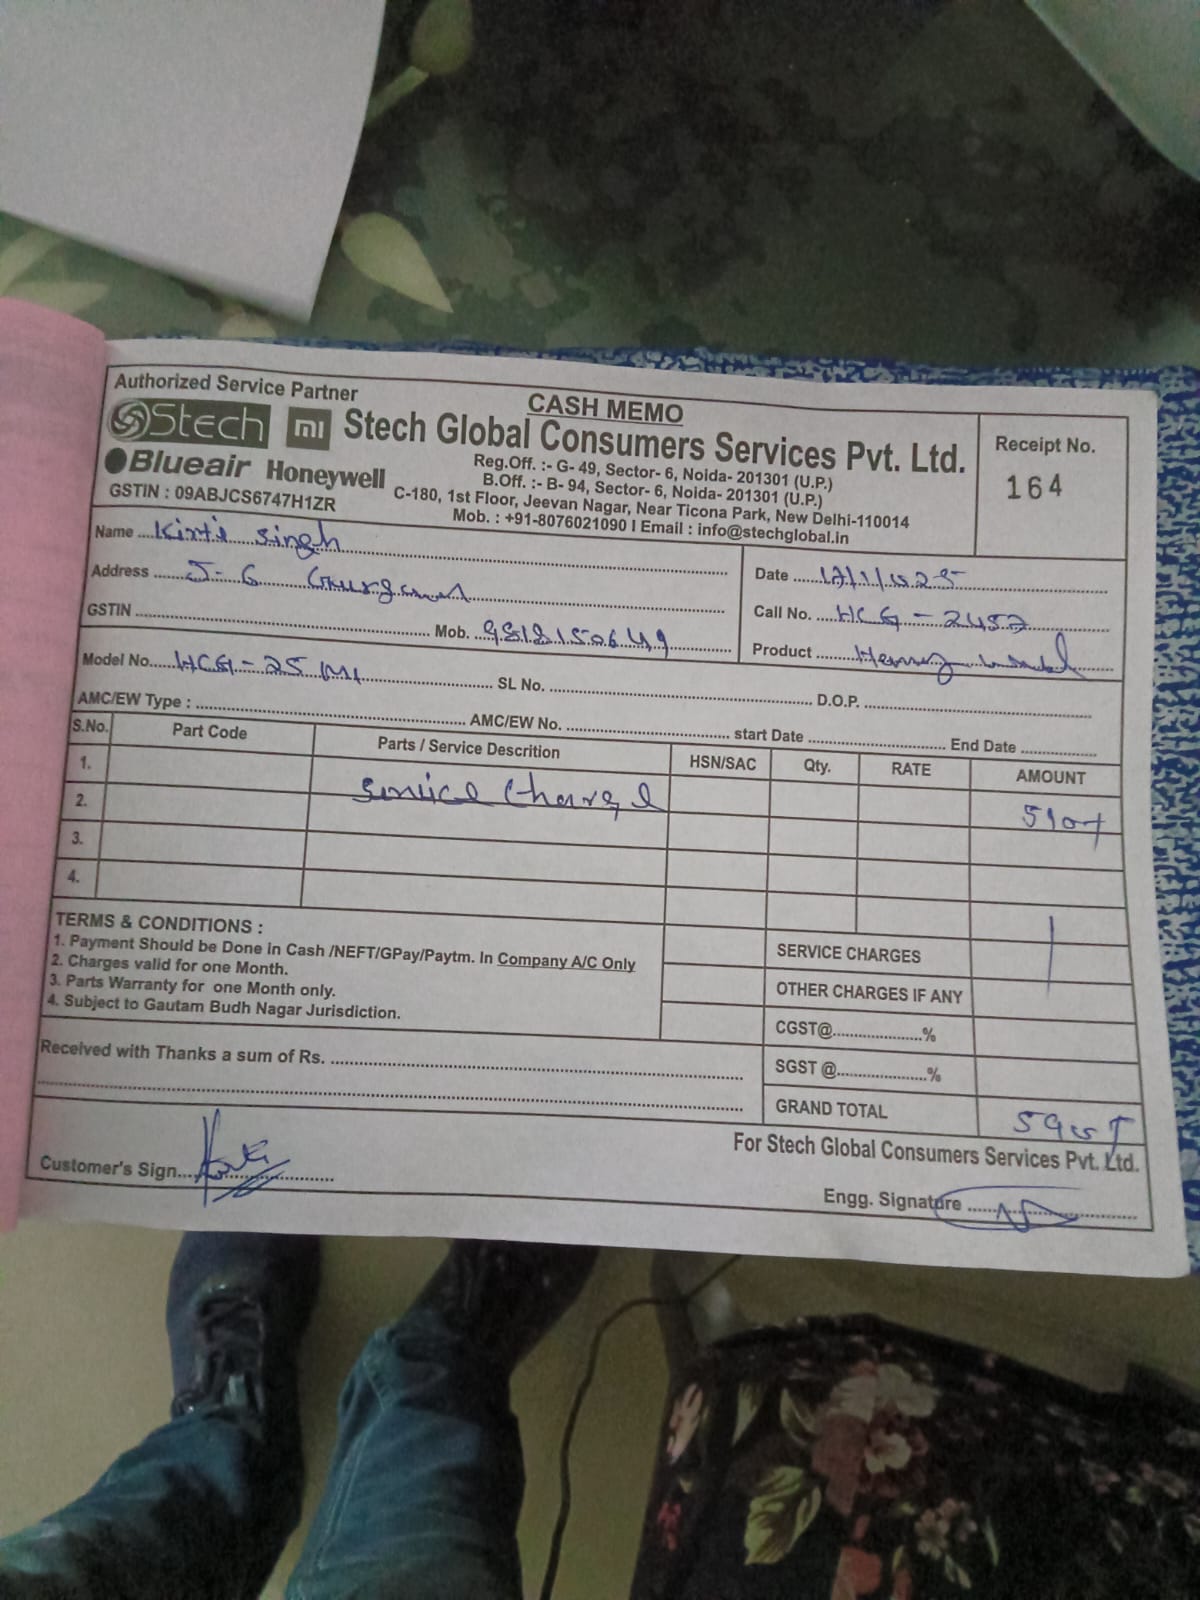 Authorized Service Partner
CASH MEMO
Stech mi Stech Global Consumers Services Pvt. Ltd.
Blueair Honeywell
Reg.Off. :- G- 49, Sector- 6, Noida- 201301 (U.P.)
B.Off. :- B- 94, Sector- 6, Noida- 201301 (U.P.)
GSTIN : 09ABJCS6747H1ZR
C-180, 1st Floor, Jeevan Nagar, Near Ticona Park, New Delhi-110014
Mob. : +91-8076021090 I Email : info@stechglobal.in
Receipt No.
164
Name Kirti Singh
Address J-6 Gurgaon
GSTIN Mob.
Date
Call No. HCG-2457
Product
Model No. HCG-25M1 SL No. D.O.P.
AMC/EW Type : AMC/EW No. start Date End Date
S.No. Part Code Parts / Service Descrition HSN/SAC Qty. RATE AMOUNT
1. Service Charge
2.
3.
4.
TERMS & CONDITIONS :
1. Payment Should be Done in Cash /NEFT/GPay/Paytm. In Company A/C Only
2. Charges valid for one Month.
3. Parts Warranty for one Month only.
4. Subject to Gautam Budh Nagar Jurisdiction.
SERVICE CHARGES
OTHER CHARGES IF ANY
CGST@ %
SGST @ %
GRAND TOTAL
Received with Thanks a sum of Rs.
For Stech Global Consumers Services Pvt. Ltd.
Customer's Sign
Engg. Signature